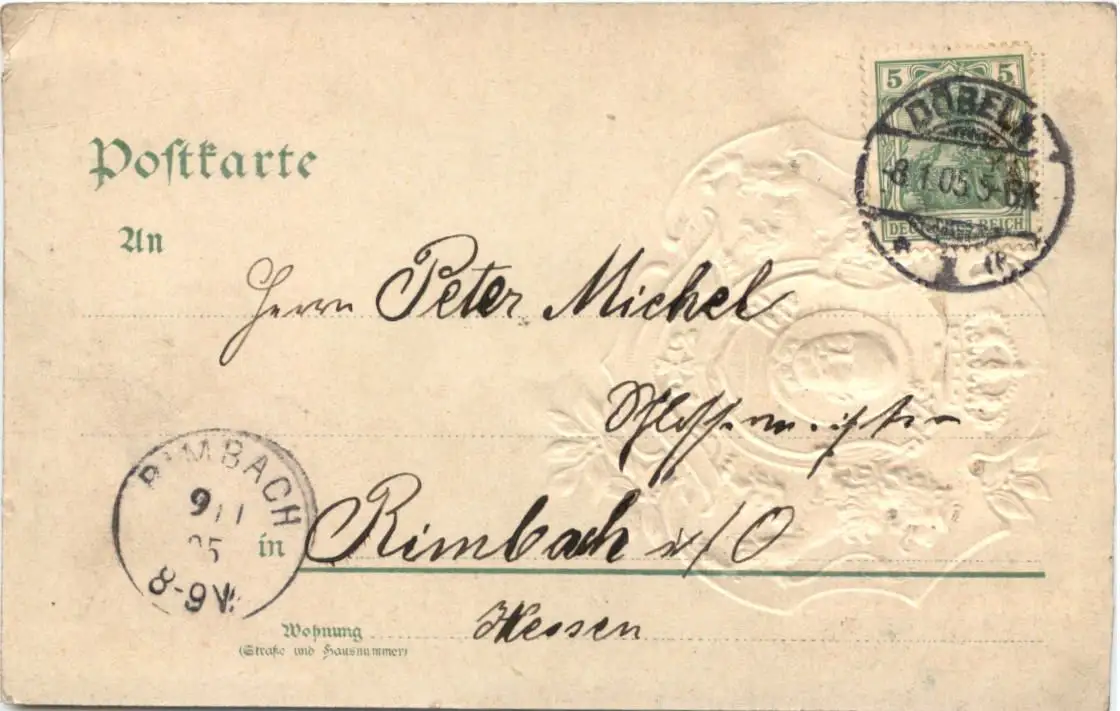 Postkarte
5 5
DÖBELN
-8.1.05 5-6N
DEUTSCHES REICH
1
An
Herrn Peter Michel
Schlossermeister
RIMBACH
9/1
05
8-9V.
in Rimbach i/O
Wohnung Hessen
(Straße und Hausnummer)